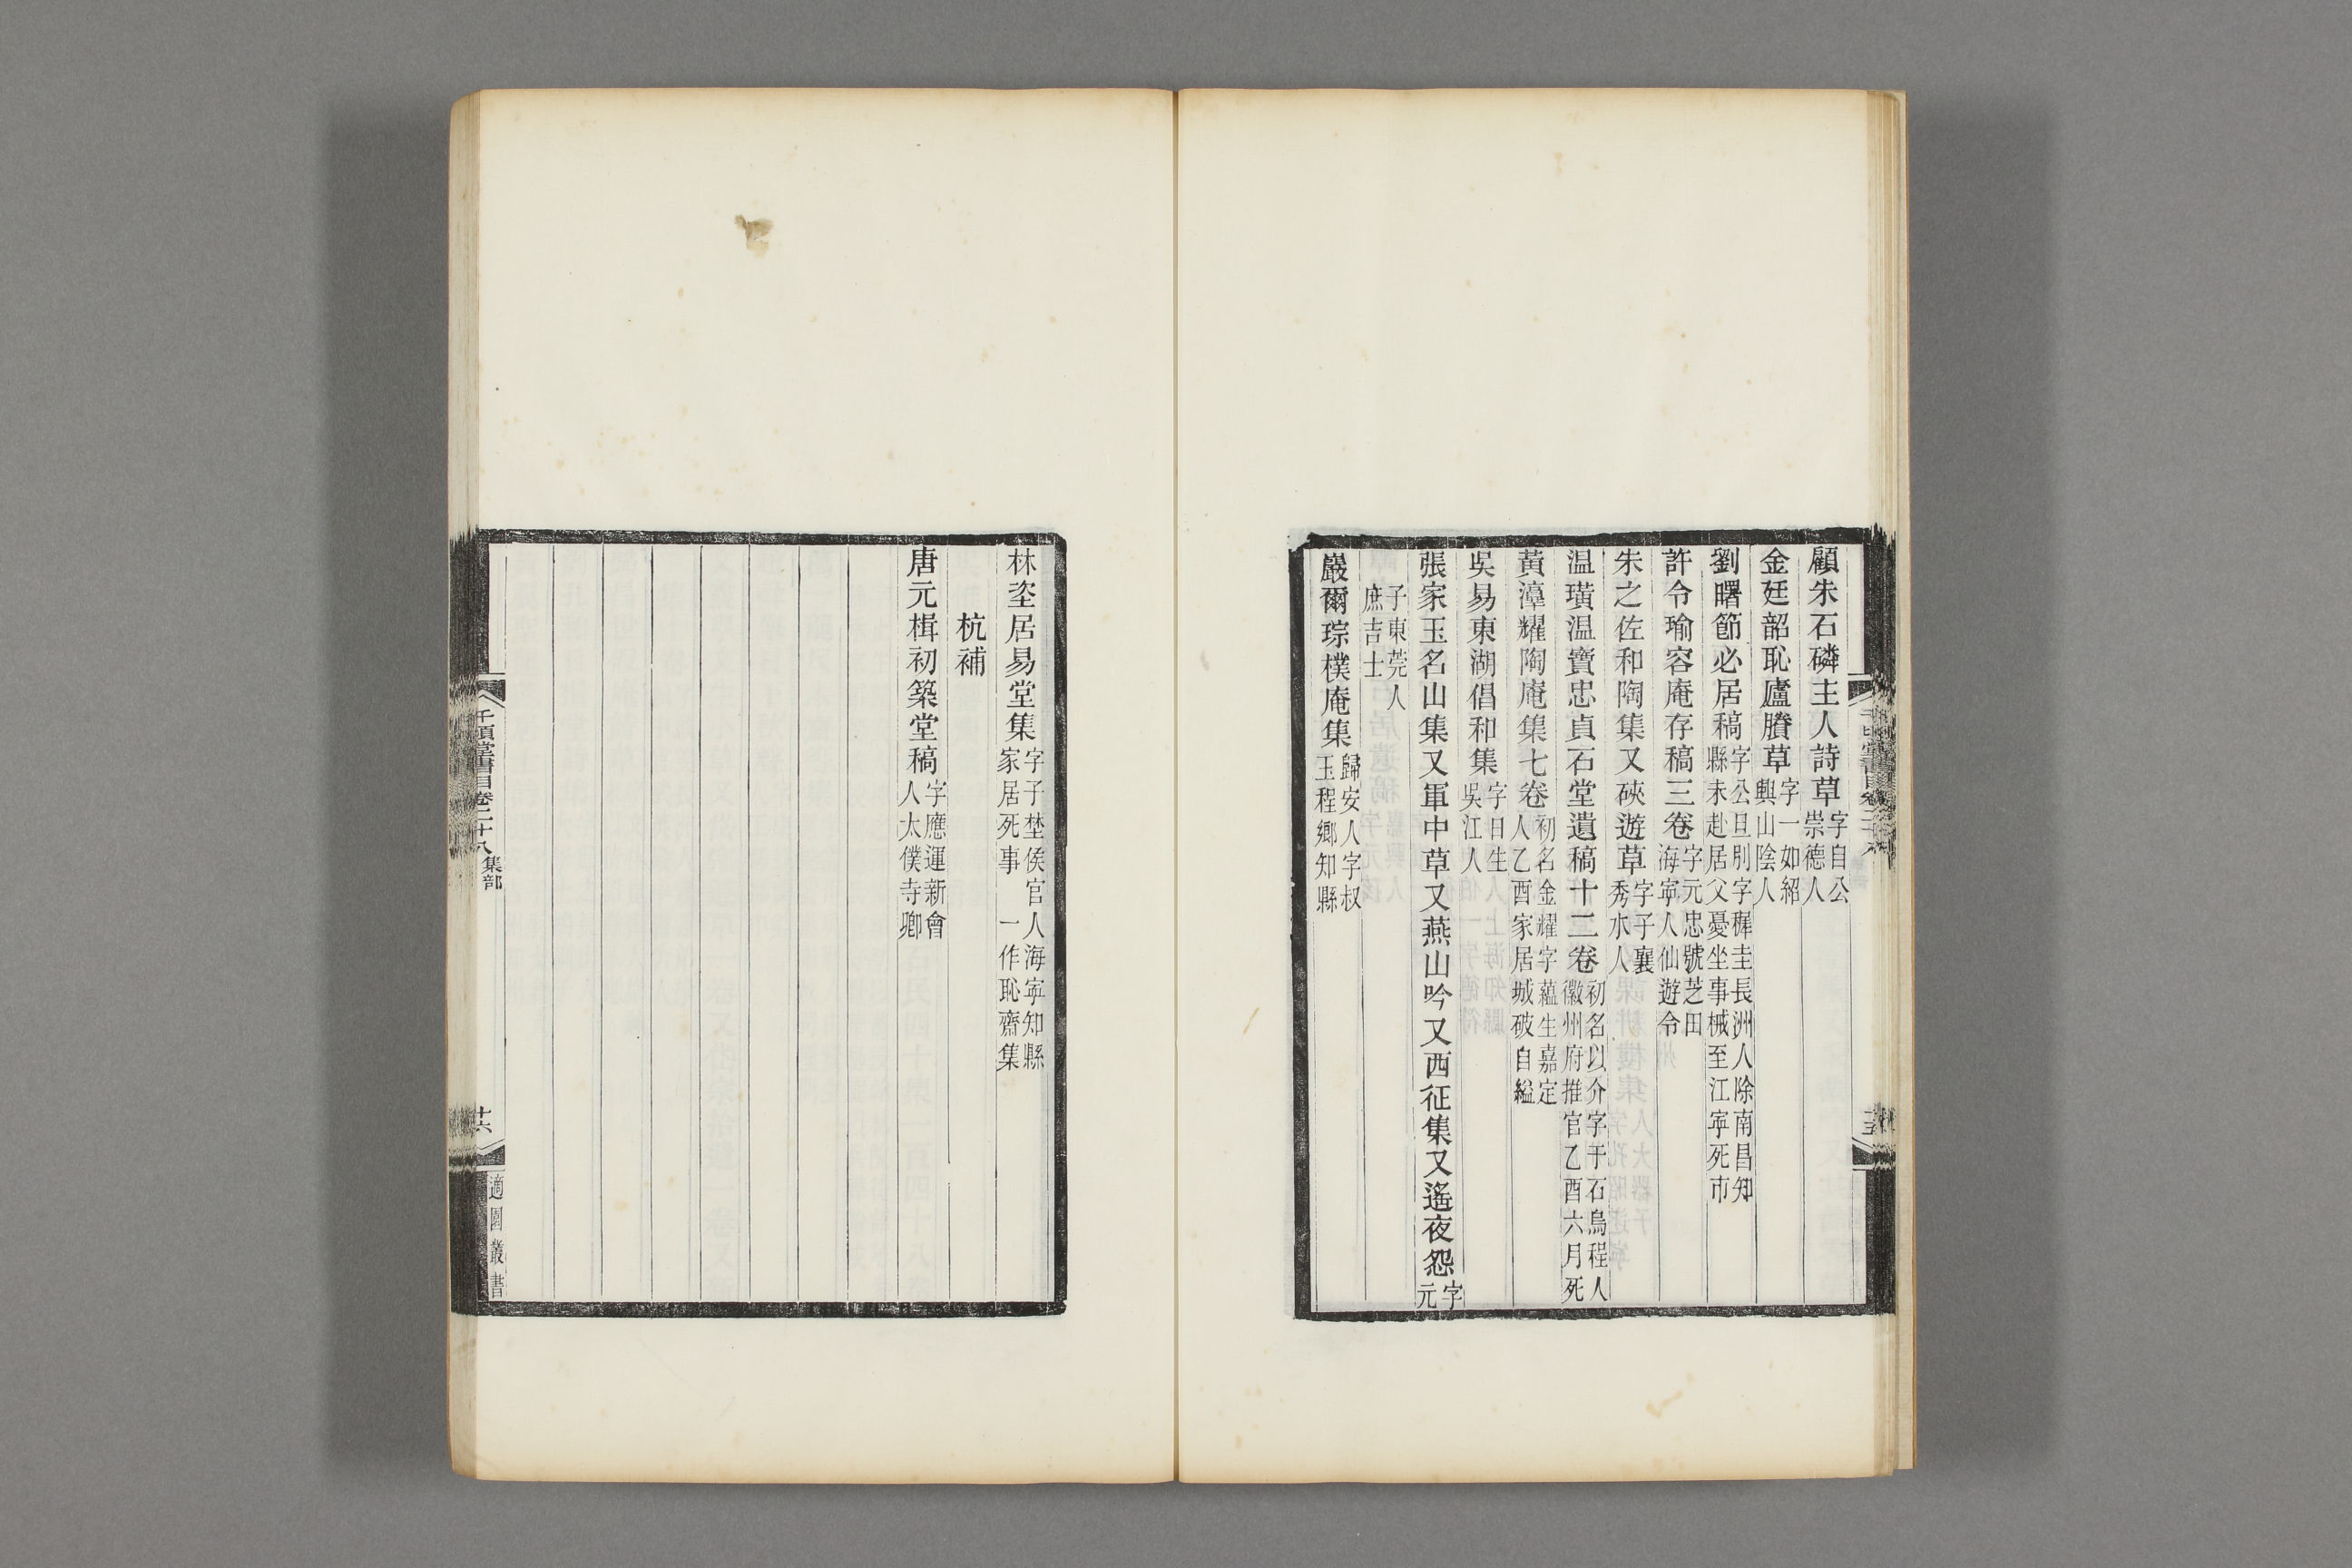 顧朱石磷主人詩草字自公崇德人
金廷韶恥廬賸草字一如紹興山陰人
劉曙節必居稿字公旦別字穉圭長洲人除南昌知縣未赴居父憂坐事械至江寧死市
許令瑜容庵存稿三卷字元忠號芝田海寧人仙遊令
朱之佐和陶集又硤遊草字子襄秀水人
温璜温寶忠貞石堂遺稿十二卷初名以介字于石烏程人徽州府推官乙酉六月死
黃漳耀陶庵集七卷初名金耀字蘊生嘉定人乙酉家居城破自縊
吳易東湖倡和集字日生吳江人
張家玉名山集又軍中草又燕山吟又西征集又遙夜怨字元
子東莞人庶吉士
嚴爾琮樸庵集歸安人字叔玉程鄉知縣
林垐居易堂集字子埜侯官人海寧知縣家居死事 一作恥齋集
杭補
唐元楫初築堂稿字應運新會人太僕寺卿
千頃堂書目卷二十八集部
十六
適園叢書